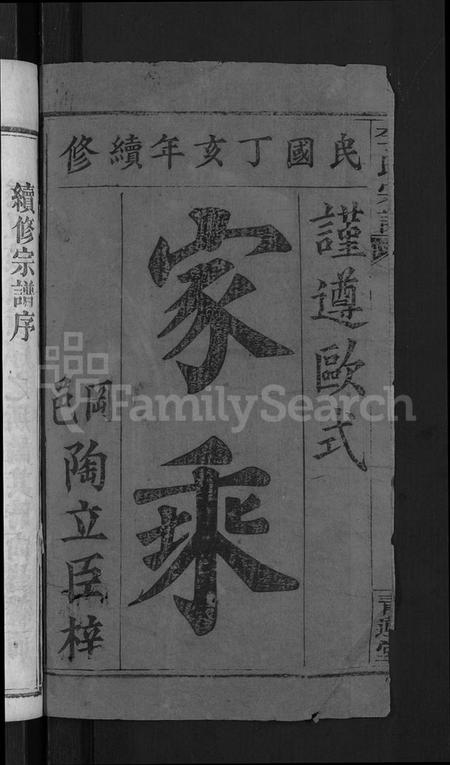 民國丁亥年續修
謹遵歐式
家乘
岡邑陶立臣梓
續修宗譜序
FamilySearch